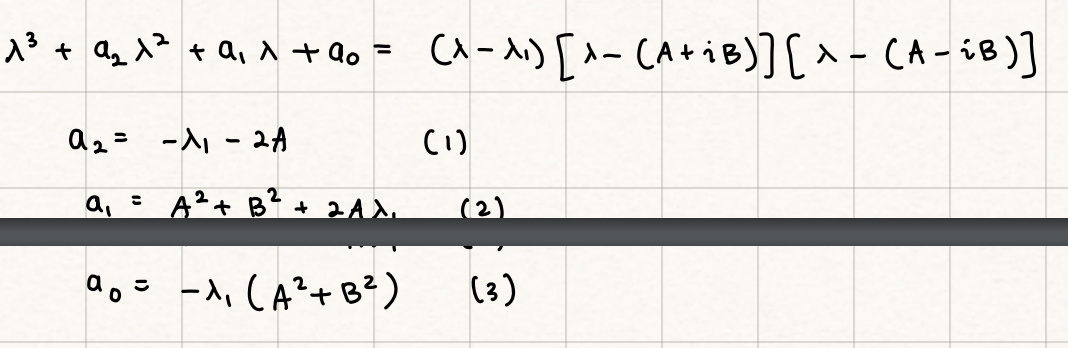 λ³ + a₂ λ² + a₁ λ + a₀ = (λ - λ₁) [λ - (A + iB)] [λ - (A - iB)]
a₂ = -λ₁ - 2A (1)
a₁ = A² + B² + 2Aλ₁ (2)
a₀ = -λ₁ (A² + B²) (3)